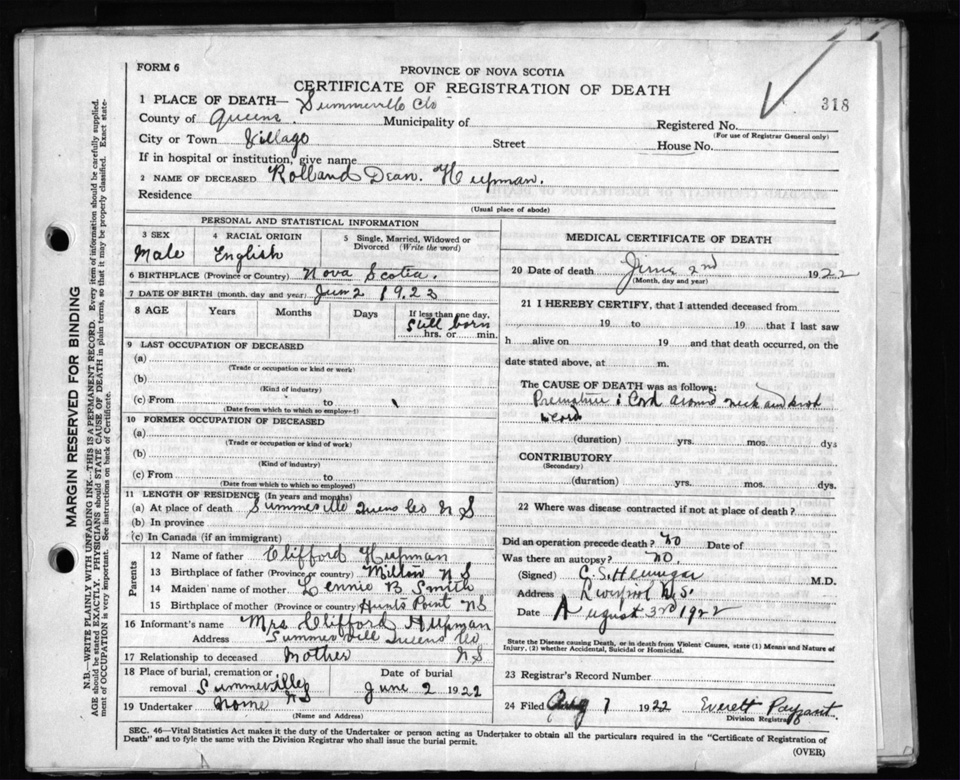 FORM 6
PROVINCE OF NOVA SCOTIA
CERTIFICATE OF REGISTRATION OF DEATH
318
1 PLACE OF DEATH— Summerville Co
County of Queens Municipality of Registered No.
(For use of Registrar General only)
City or Town Village Street House No.
If in hospital or institution, give name
2 NAME OF DECEASED Rolland Dean. Hupman.
Residence
(Usual place of abode)
PERSONAL AND STATISTICAL INFORMATION
3 SEX 4 RACIAL ORIGIN 5 Single, Married, Widowed or Divorced (Write the word)
Male English
6 BIRTHPLACE (Province or Country) Nova Scotia.
7 DATE OF BIRTH (month, day and year) Jun 2 192
8 AGE Years Months Days If less than one day,
Still born
hrs. or min.
9 LAST OCCUPATION OF DECEASED
(a)
(Trade or occupation or kind or work)
(b)
(Kind of industry)
(c) From to
(Date from which to which so employed)
10 FORMER OCCUPATION OF DECEASED
(a)
(Trade or occupation or kind of work)
(b)
(Kind of industry)
(c) From to
(Date from which to which so employed)
11 LENGTH OF RESIDENCE (In years and months)
(a) At place of death Summerville Queens Co N S
(b) In province
(c) In Canada (if an immigrant)
Parents
12 Name of father Clifford Hupman
13 Birthplace of father (Province or country) Milton N S
14 Maiden name of mother Lennie B Smith
15 Birthplace of mother (Province or country) Hunts Point NS
16 Informant's name Mrs Clifford Hupman
Address Summerville Queens Co
17 Relationship to deceased Mother N S
18 Place of burial, cremation or removal Summerville NS
Date of burial June 2 1922
19 Undertaker None
(Name and Address)
MEDICAL CERTIFICATE OF DEATH
20 Date of death June 2nd 1922
(Month, day and year)
21 I HEREBY CERTIFY, that I attended deceased from
19 to 19 that I last saw
h alive on 19 and that death occurred, on the
date stated above, at m.
The CAUSE OF DEATH was as follows:
Premature : Cord around neck and
(duration) yrs. mos. dys
CONTRIBUTORY
(Secondary)
(duration) yrs. mos. dys.
22 Where was disease contracted if not at place of death?
Did an operation precede death? No Date of
Was there an autopsy? No.
(Signed) M.D.
Address Liverpool N.S.
Date August 3rd 1922
State the Disease causing Death, or in death from Violent Causes, state (1) Means and Nature of
Injury, (2) whether Accidental, Suicidal or Homicidal.
23 Registrar's Record Number
24 Filed Aug 7 1922 Everett Payzant
Division Registrar
SEC. 46—Vital Statistics Act makes it the duty of the Undertaker or person acting as Undertaker to obtain all the particulars required in the "Certificate of Registration of
Death" and to fyle the same with the Division Registrar who shall issue the burial permit.
(OVER)
MARGIN RESERVED FOR BINDING
N.B.—WRITE PLAINLY WITH UNFADING INK—THIS IS A PERMANENT RECORD. Every item of information should be carefully supplied.
AGE should be stated EXACTLY. PHYSICIANS should STATE CAUSE OF DEATH in plain terms, so that it may be properly classified. Exact state-
ment of OCCUPATION is very important. See instructions on back of Certificate.